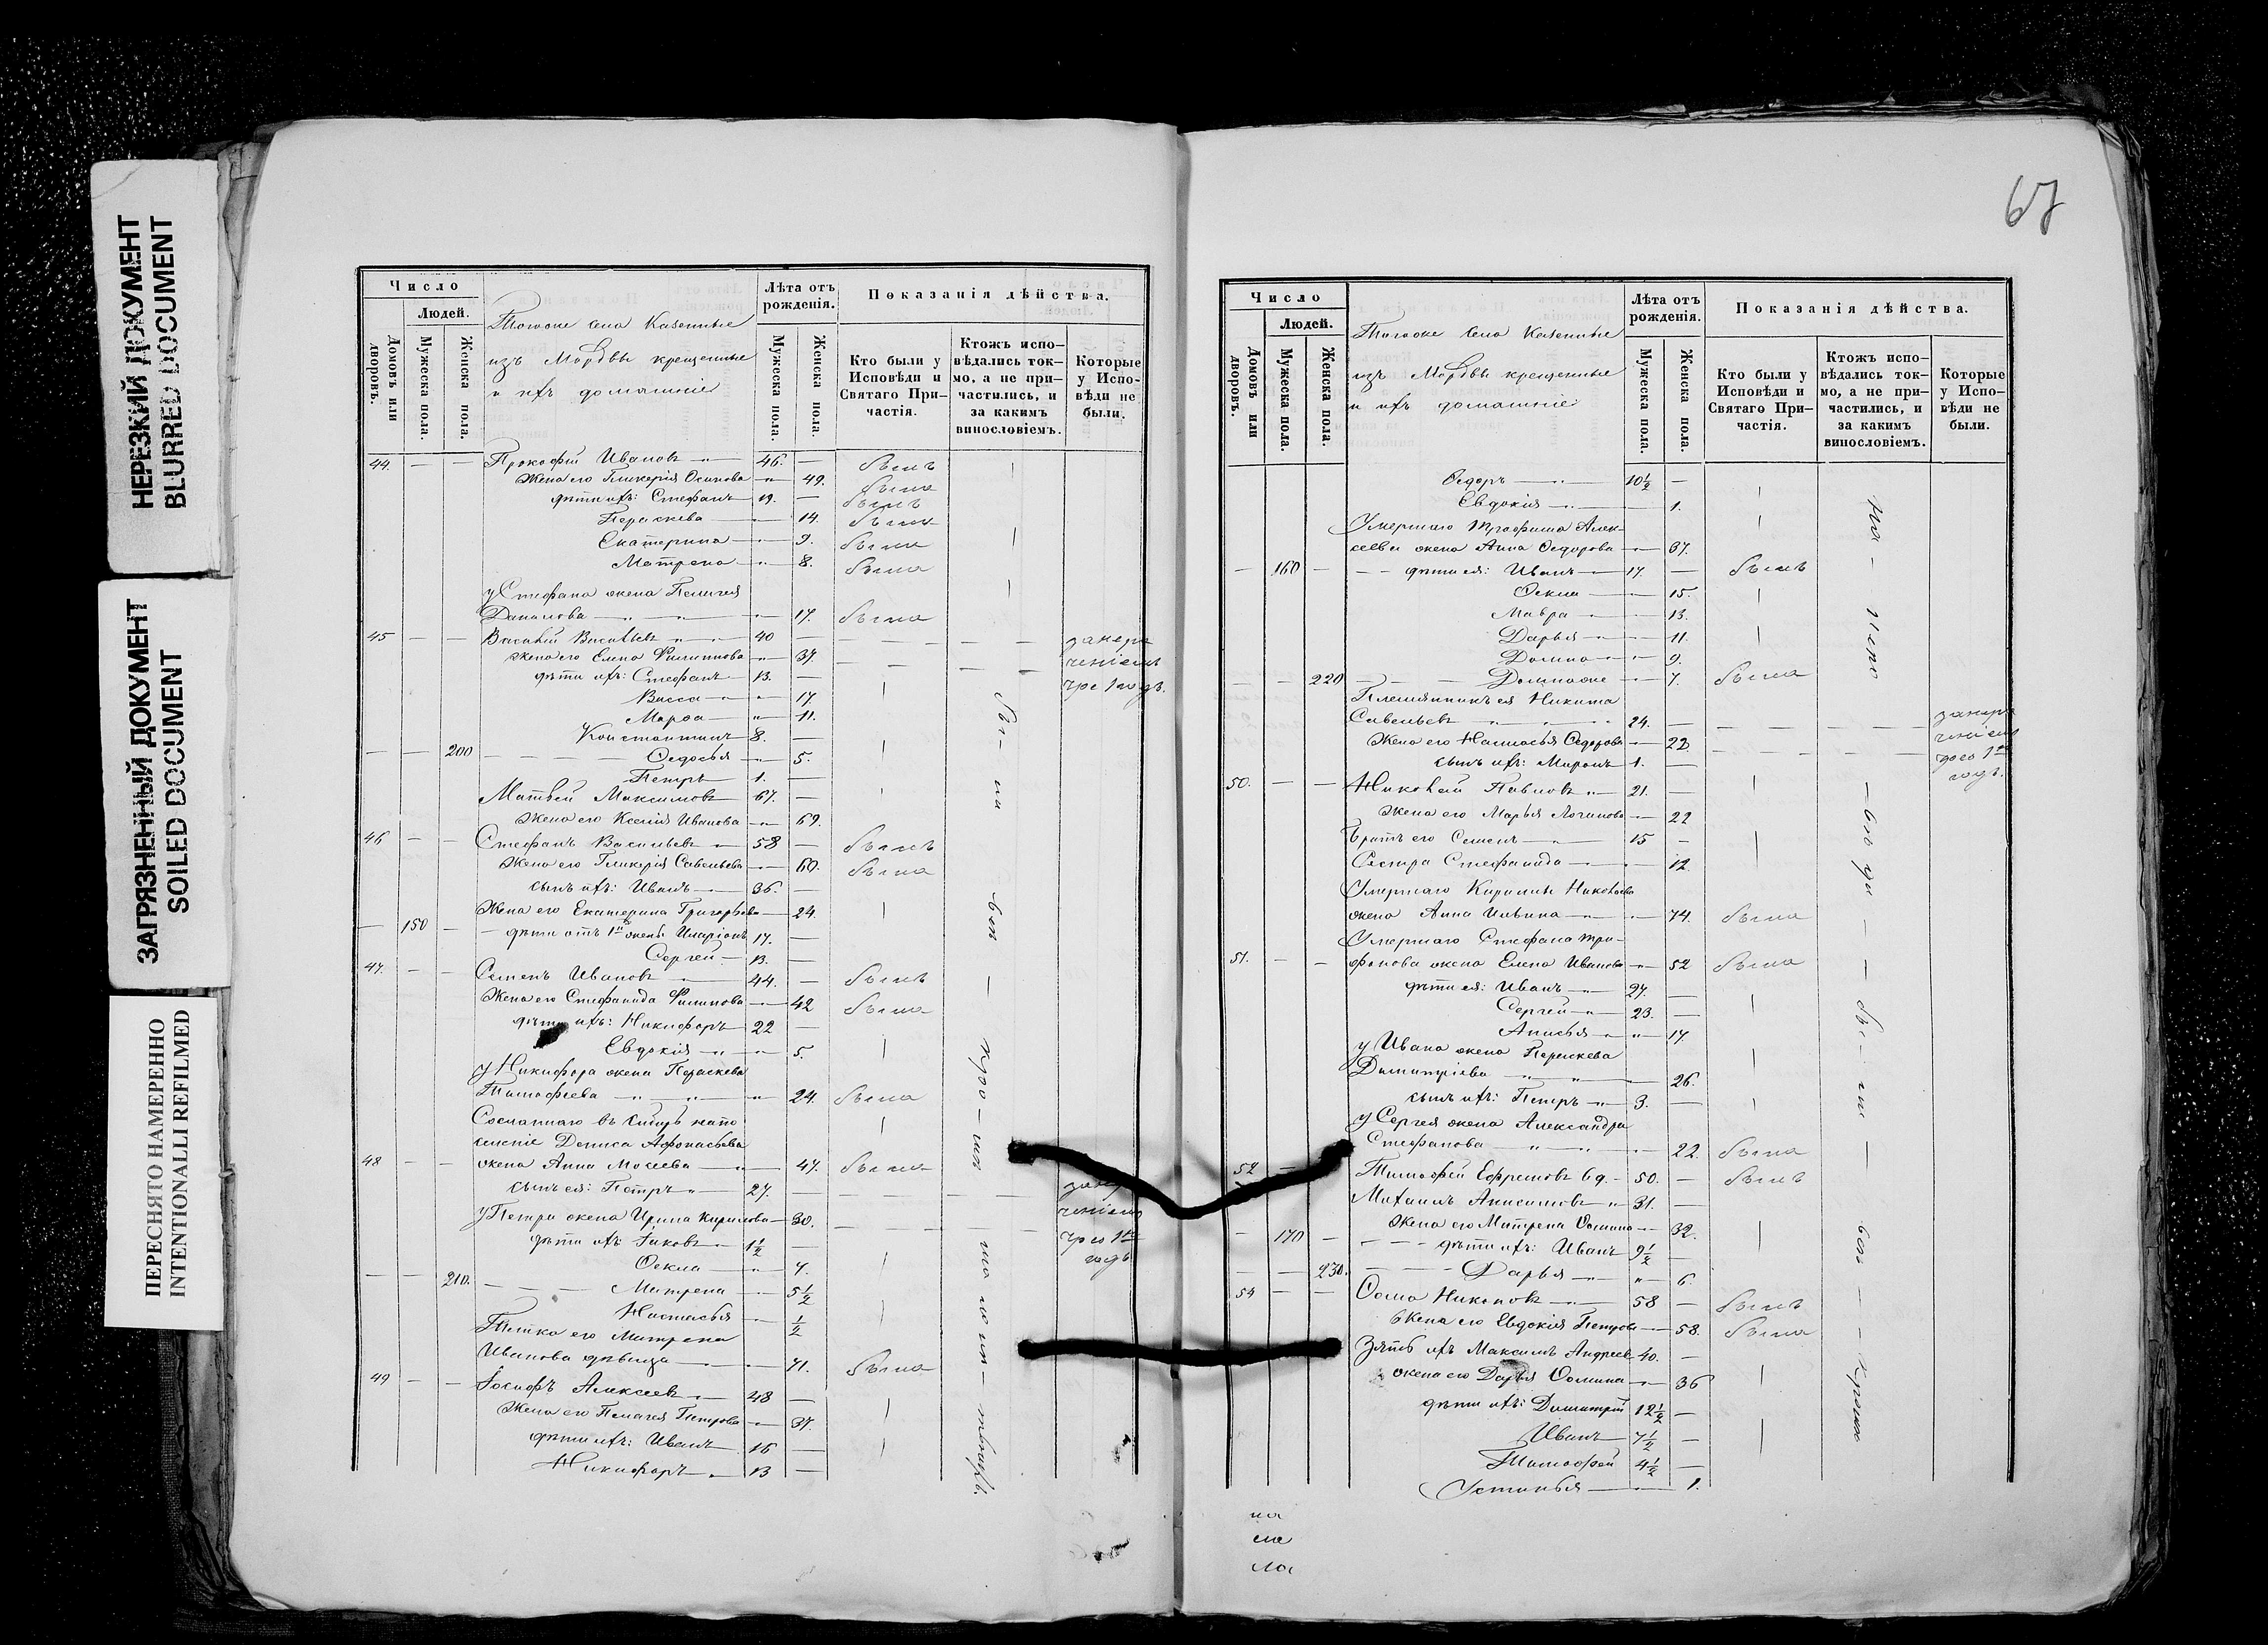 НЕРЕЗКИЙ ДОКУМЕНТ
BLURRED DOCUMENT
ЗАГРЯЗНЕННЫЙ ДОКУМЕНТ
SOILED DOCUMENT
ПЕРЕСНЯТО НАМЕРЕННО
INTENTIONALLI REFILMED
Число
Людей.
Домовъ или дворовъ.
Мужеска пола.
Женска пола.
Тогоже села Казенные
изъ Мордвы крещенные
и ихъ домашніе
Лѣта отъ рожденія.
Мужеска пола.
Женска пола.
Показанія дѣйства.
Кто были у Исповѣди и Святаго При-частія.
Ктожъ испо-вѣдались ток-мо, а не при-частились, и за какимъ винословіемъ.
Которые у Испо-вѣди не были.
44. — — Прокофій Ивановъ 46. — былъ
Жена его Гликерія Осипова 49. была
дѣти ихъ: Стефанъ 19. — былъ
Параскева 14. была
Екатерина 9. была
Матрена 8. была
у Стефана жена Пелагея
Данилова 17. была
45 — — Василій Васильевъ 40 —
жена его Елена Филиппова 37.
дѣти ихъ: Стефанъ 13. —
Васса 17.
Марѳа 11.
Константинъ 8. —
— — 200 Ѳедосья 5.
Петръ 1. —
Матвей Максимовъ 67. —
жена его Ксенія Иванова 69.
46 — Стефанъ Васильевъ 58 — былъ
жена его Гликерія Савельева 60. была
сынъ ихъ: Иванъ 36. —
Жена его Екатерина Григорьева 24.
— 150 — дѣти отъ 1й жены Иларіонъ 17. —
Сергей 13. —
47. — — Семенъ Ивановъ 44. — былъ
Жена его Стефанида Филипова 42 была
дѣти ихъ: Никифоръ 22 —
Евдокія 5.
у Никифора жена Параскева
Тимофеева 24. была
Сосланнаго въ Сибирь на по
селеніе Дениса Афонасьева
48 — — жена Анна Моисеева 47. была
сынъ ея: Петръ 27.
у Петра жена Ирина Кирилова 30.
дѣти ихъ Яковъ 1½ —
Ѳекла 7.
— — 210. Матрена 5½
Настасья ½
Тетка его Матрена
Иванова дѣвица 71. была
49 — — Іосифъ Алексеевъ 48 —
Жена его Пелагея Петрова 37.
дѣти ихъ: Иванъ 16 —
Никифоръ 13 —
67
Число
Людей.
Домовъ или дворовъ.
Мужеска пола.
Женска пола.
Тогоже села Казенные
изъ Мордвы крещенные
и ихъ домашніе
Лѣта отъ рожденія.
Мужеска пола.
Женска пола.
Показанія дѣйства.
Кто были у Исповѣди и Святаго При-частія.
Ктожъ испо-вѣдались ток-мо, а не при-частились, и за какимъ винословіемъ.
Которые у Испо-вѣди не были.
Ѳедоръ 10½ —
Евдокія 1.
Умершаго Трофима Алек-
сеева жена Анна Ѳедорова 37.
— 160 — дѣти ея: Иванъ 17. — былъ
Ѳекла 15.
Мавра 13.
Дарья 11.
Домна 9.
— — 220 7. была
Племянникъ ея Никита
Савельевъ 24. —
Жена его Настасья Ѳедорова 22.
сынъ ихъ: Миронъ 1. —
50. — — Николай Павловъ 21. —
Жена его Марья Логинова 22
Братъ его Семенъ 15 —
Сестра Стефанида 12
Умершаго Кирилы Николаева
жена Анна Ильина 74. была
Умершаго Стефана Три-
51. — — фонова жена Елена Иванова 52 была
дѣти ея: Иванъ 27. —
Сергей 23. —
Анисья 17.
у Ивана жена Параскева
Димитріева 26.
сынъ ихъ: Петръ 3. —
у Сергея жена Александра
Стефанова 22. была
52 — Тимофей Ефремовъ вд. 50. — былъ
Михаилъ Анисимовъ 31. —
Жена его Матрена Ѳомина 32.
— 170 — дѣти ихъ: Иванъ 9½ —
— — 230. Дарья 6
54 — — Ѳома Никоновъ 58 — былъ
Жена его Евдокія Петрова 58. была
Зять ихъ Максимъ Андреевъ 40. —
жена его Дарья Ѳомина 36
дѣти ихъ: Димитрій 12½ —
Иванъ 7½ —
Тимофей 4½ —
Устинья 1.